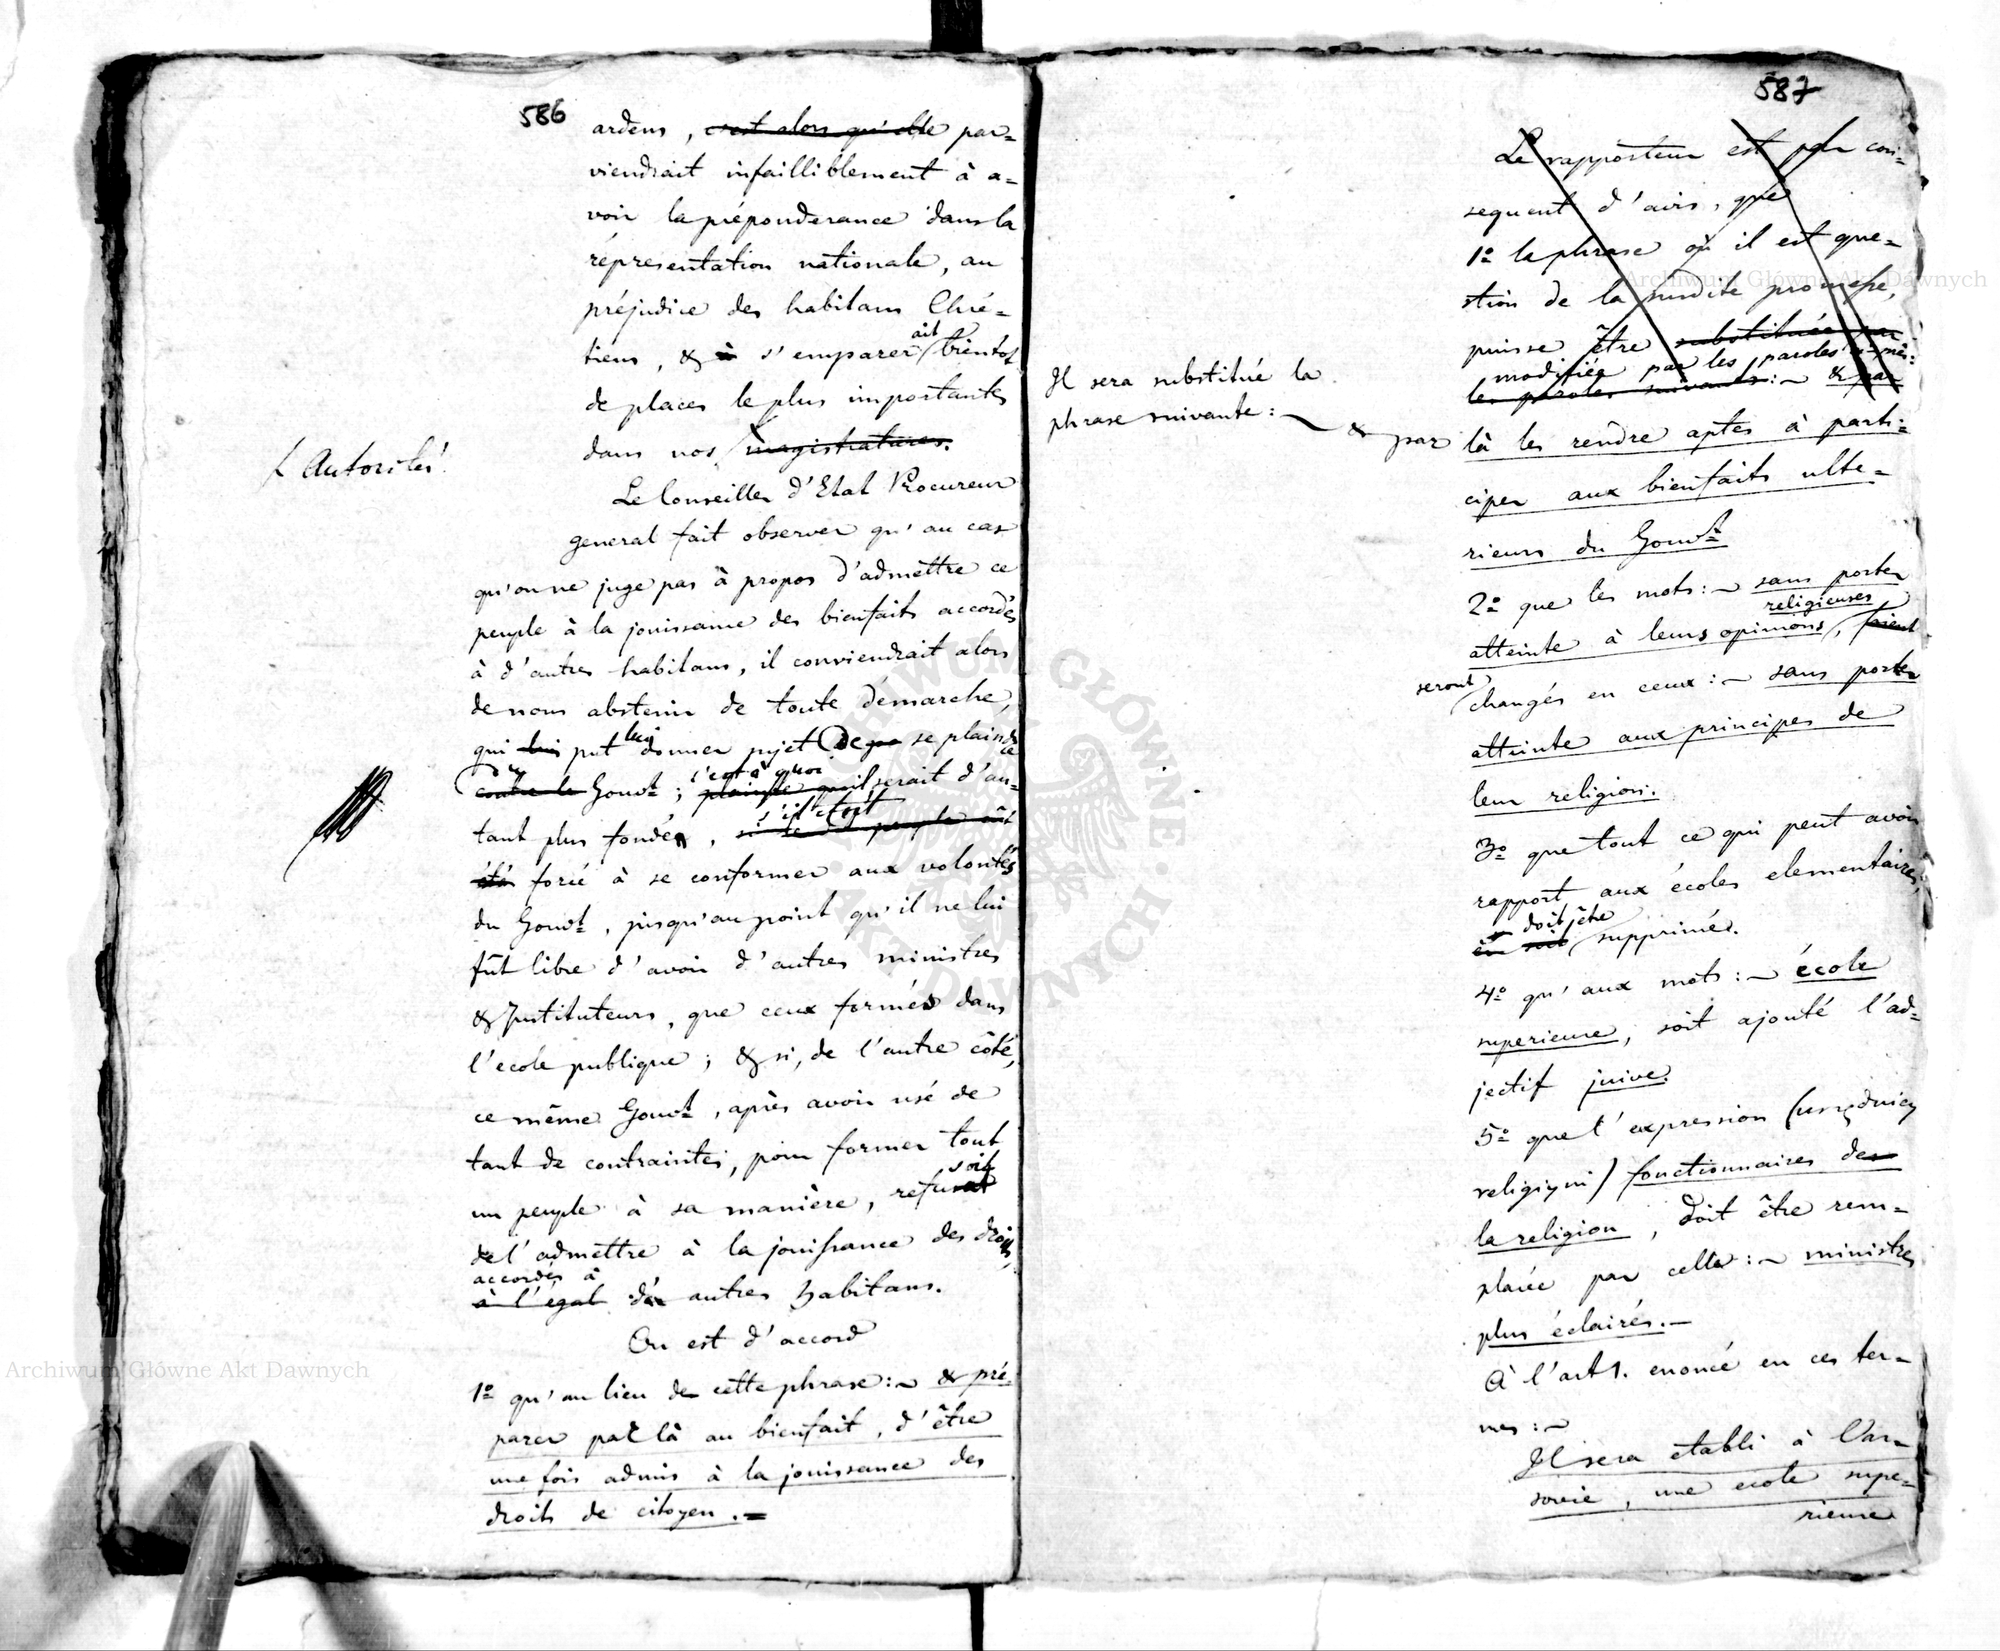 586
ardens, c'est alors qu'elle par=
viendrait infailliblement à a=
voir la préponderance dans la
répresentation nationale, au
préjudice des habitans Chré=
tiens, & à s'emparerait bientot
de places le plus importantes
dans nos magistratures.
Autorités.
Le Conseiller d'Etat Procureur
general fait observer qu'au cas
qu'on ne juge pas à propos d'admettre ce
peuple à la jouissance des bienfaits accordés
à d'autres habitans, il conviendrait alors
de nous abstenir de toute démarche,
qui lui put lui donner sujet de se plaindre
du
contre le Gouvt; s'est à quoi
plainte qu'il serait d'au=
tant plus fondé, s'il étoit
si ce peuple eût
été forcé à se conformer aux volontés
du Gouvt, jusqu'au point qu'il ne lui
fût libre d'avoir d'autres ministres
& Instituteurs, que ceux formés dans
l'ecole publique; & si, de l'autre côté,
ce même Gouvt, après avoir usé de
tant de contraintes, pour former tout
un peuple à sa manière, refusoit
de l'admettre à la jouissance des droits,
accordés à
à l'egal des autres habitans.
On est d'accord
1º qu'au lieu de cette phrase:~ & pré=
parer par là au bienfait, d'être
une fois admis à la jouissance des
droits de citoyen.=
587
Le rapporteur est par con=
sequent d'avis, que
1º la phrase où il est que=
stion de la susdite promesse,
puisse être substituée par
modifiée par les paroles
les paroles suivants:~ & par
Il sera substitué la
phrase suivante:~
& par là les rendre aptes à parti=
ciper aux bienfaits ulte=
rieurs du Gouvt
2º que les mots:~ sans porter
religieuses
atteinte à leurs opinions, soient
seront changés en ceux:~ sans porter
atteinte aux principes de
leur religion.
3º que tout ce qui peut avoir
rapport aux écoles elementaires,
doit être
en soit supprimé.
4º qu'aux mots:~ école
superieure, soit ajouté l'ad=
jectif juive.
5º que l'expression (urzędnicy
religiyni) fonctionnaires de
la religion, doit être rem=
placée par celle:~ ministres
plus éclairés.—
À l'art 1. enoncé en ces ter=
mes:~
Il sera etabli à Var=
sovie, une ecole supe=
rieure
Archiwum Główne Akt Dawnych
Archiwum Główne Akt Dawnych
ARCHIWUM GŁÓWNE AKT DAWNYCH